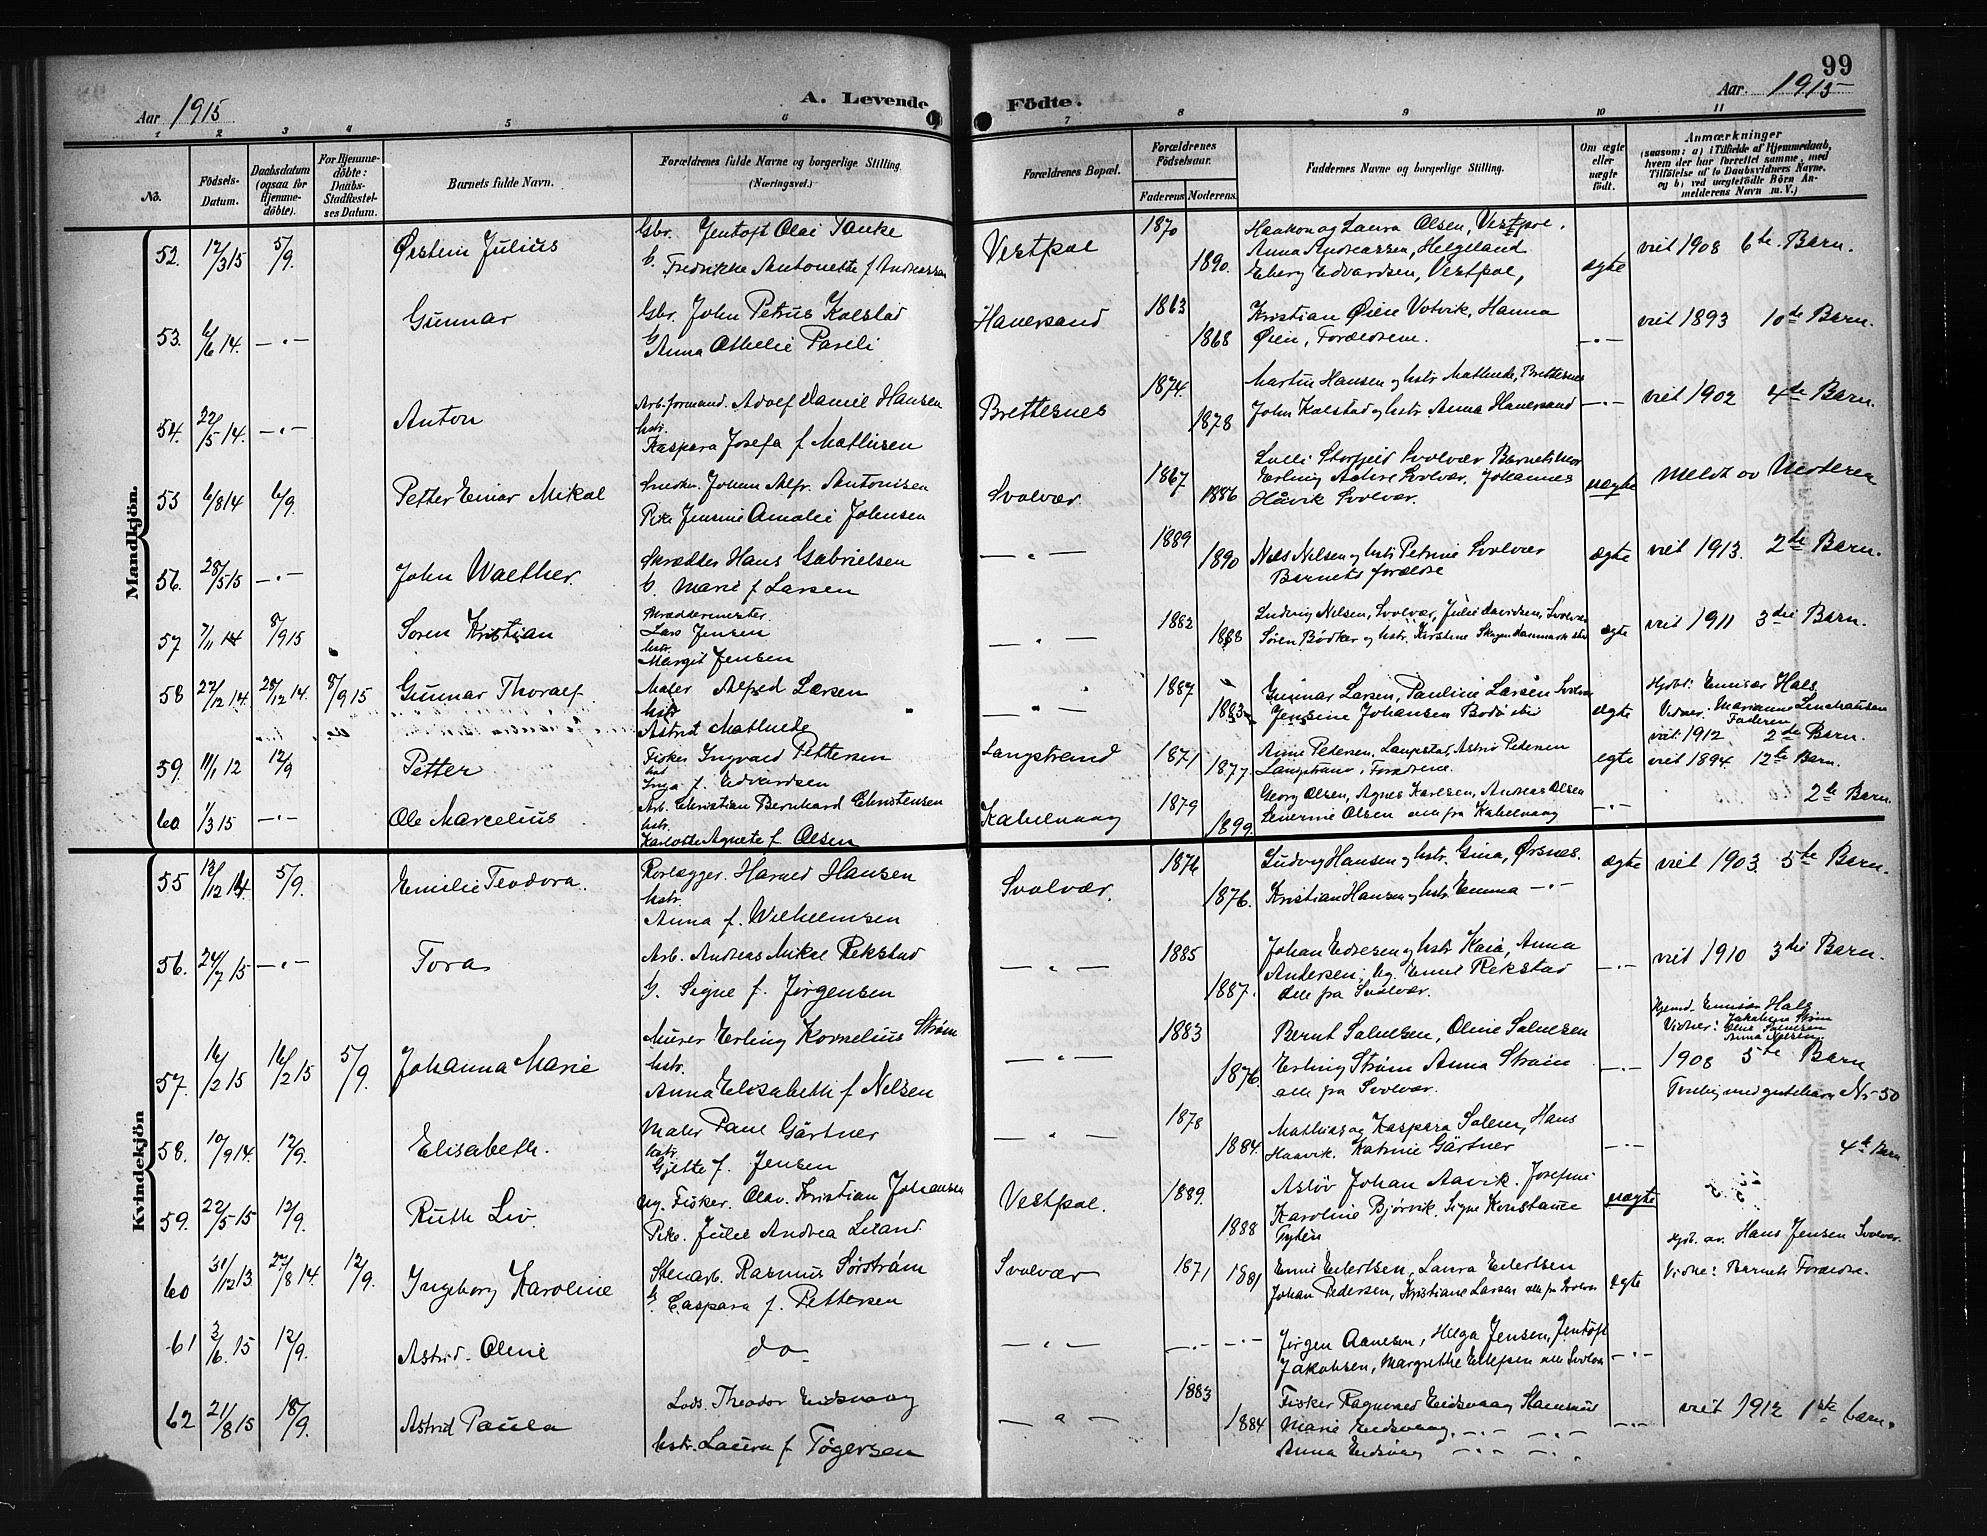 99
Aar 1915
A. Levende Födte.
Aar 1915
1 2 3 4 5 6 7 8 9 10 11
No.
Födsels-Datum.
Daabsdatum (ogsaa for Hjemme-döbte).
For Hjemme-döbte: Daabs-Stadfæstel-ses Datum.
Barnets fulde Navn.
Forældrenes fulde Navne og borgerlige Stilling. (Næringsvei.)
Forældrenes Bopæl.
Forældrenes Födselsaar.
Faderens Moderens.
Faddernes Navne og borgerlige Stilling.
Om ægte eller uægte födt.
Anmærkninger
(saasom: a) i Tilfælde af Hjemmedaab, hvem der har forrettet samme, med Tilföielse af to Daabsvidners Navne, og b) ved uægtefödte Börn An-melderens Navn m. V.)
Mandkjön.
52. 12/3 15 5/9. Øistein Julius
Gbr. Jentoft Olai Tanke
Fredrikke Antonette f. Andreassen
Vestpol 1870 1890.
Haakon og Laura Olsen, Vestpol.
Anna Andreassen, Helgeland
Edvardsen, Vestpol,
ægte viet 1908 6te Barn.
53. 6/6 14. —"— Gunnar
Gbr. John Petrus Kolstad
Anna Othelie
Hanersand 1863 1868
Kristian Øien Votvik, Hanna
Øien, Forældrene.
—"— viet 1893 10de Barn.
54. 22/5 14. —"— Anton
Arb.formand. Adolf Daniel Hansen
hstr.
Kaspara Josefa f. Mathisen
Brettesnes 1874. 1878
Martin Hansen og hstr Mathilde, Brettesnes
John Kolstad og hstr. Anna Hanersand
—"— viet 1902 4de Barn.
55 6/8 14 6/9. Petter Einar Mikal
Johan Alfr. Antonisen
Pike Jensine Amalie Johnsen
Svolvær. 1867 1886
Storfjeld Svolvær Barnets mor
Erling Svolvær, Johannes
Håvik Svolvær.
uægte Meldt av Moderen
56. 28/5 15 —"— John Walther.
Skrædder Hans Gabrielsen
Marie f. Larsen
—"— 1889 1890
Nils Nilsen og hstr Petrine Svolvær
Barnets forældre
ægte viet 1913. 2de Barn.
57 7/11 14 8/9 15 Søren Kristian
Skræddermester
Lars Jensen
hstr.
Margit Jensen
—"— 1882 1888
Ludvig Nilsen, Svolvær, Julie Davidsen, Svolvær
Søren Bødker og hstr. Kirstine Skagen Danmark
ægte viet 1911 3die Barn.
58 22/12 14. 28/12 14. 8/9 15 Gunnar Thoralf
Maler Alfred Larsen
hstr
Astrid Mathilde
—"— 1887 1883
Gunnar Larsen, Pauline Larsen Svolvær
Jensine Johansen Bodø
ægte
Hjdbt. Emisær Hals
Vidner. Marianne
Faderen
viet 1912 2de Barn.
59. 11/1 12 12/9 Petter
Fisker Ingvald Pettersen
Inga f. Edvardsen
Langstrand 1871 1877.
Anne Pedersen, Langstrand, Astrid Pedersen
Langstrand, Forældrene.
egte viet 1894 12te Barn.
60 1/3 15 —"— Ole Marcelius
Arb. Christian Bernhard Christensen
hstr.
Karlotte Agnete f. Olsen
Kabelvaag 1879 1899
Georg Olsen, Agnes Karlsen, Andreas Olsen
Severine Olsen alle fra Kabelvaag
—"— 2de Barn.
Kvindekjön
55 13/12 14 5/9. Emilie Teodora.
Rørlægger. Harald Hansen
hstr.
Anna f. Wilhelmsen
Svolvær. 1876 1876.
Ludvig Hansen og hstr. Gina, Ørsnes.
Kristian Hansen og hstr. Emma —"—
ægte viet 1903 5te Barn.
56. 24/7 15 —"— Tora
Arb. Andreas Mikal Rekstad
G. Signe f. Jørgensen
—"— 1885 1887.
Johan og hstr Kaia, Anna
Andersen, Ug. Emil Rekstad
alle fra Svolvær.
—"— viet 1910 3die Barn.
57. 16/2 15 16/2 15 5/9. Johanna Marie
Murer Erling Kornelius Strøm
hstr.
Anna Elisabeth f. Nilsen
—"— 1883 1876.
Bernt Salvesen, Oline Salvesen
Erling Strøm Anna Strøm
alle fra Svolvær.
—"—
Hjemd. Emisær Hals
Vidner: Jakobine Strøm
Oline Salvesen
Anna Nilsen
1908 5te Barn
Tvilling med guttebarn Nr 50
58. 10/9 14. 12/9. Elisabeth.
Maler Paul Gärtner
hstr.
Gjette f. Jensen
—"— 1878 1884.
Mathias og Kaspara Salen, Hans
Haavik. Katrine Gärtner
—"— 4de Barn.
59. 22/5 15 12/9. Ruth Liv.
Ug. Fisker. Olav. Kristian Johansen
Pike. Julie Andrea Leland
Vestpol. 1889. 1888
Aslöv Johan Aavik. Josefine
Karoline Bjørvik. Signe Konstance
uægte
60 31/12 13 27/8 14. 12/9. Ingeborg Karoline
Stenarb. Rasmus Sørstrøm
Caspara f. Pettersen
Svolvær 1871 1881
Emil Eilertsen, Laura Eilertsen
Johan Pedersen, Kristiane Larsen alle fra Svolvær
ægte
Hjdb. av. Hans Jensen Svolvær.
Vidne: Barnets Forældre.
61 2/6. 15 12/9. Astrid. Oline
do
—"— —"— —"—
Jørgen Aanesen, Helga Jensen, Jentoft
Jakobsen, Margrethe Ellefsen alle Svolvær
—"—
62 21/8 15 18/9. Astrid Paula
Lods. Theodor Eidsvaag
hstr. Laura f. Tøgersen
—"— 1883 1884
Fisker Ragnvald Eidsvaag
Marie Eidsvaag. —"— —"—
Anna Eidsvaag —"— —"—
—"— viet 1912 1ste barn.